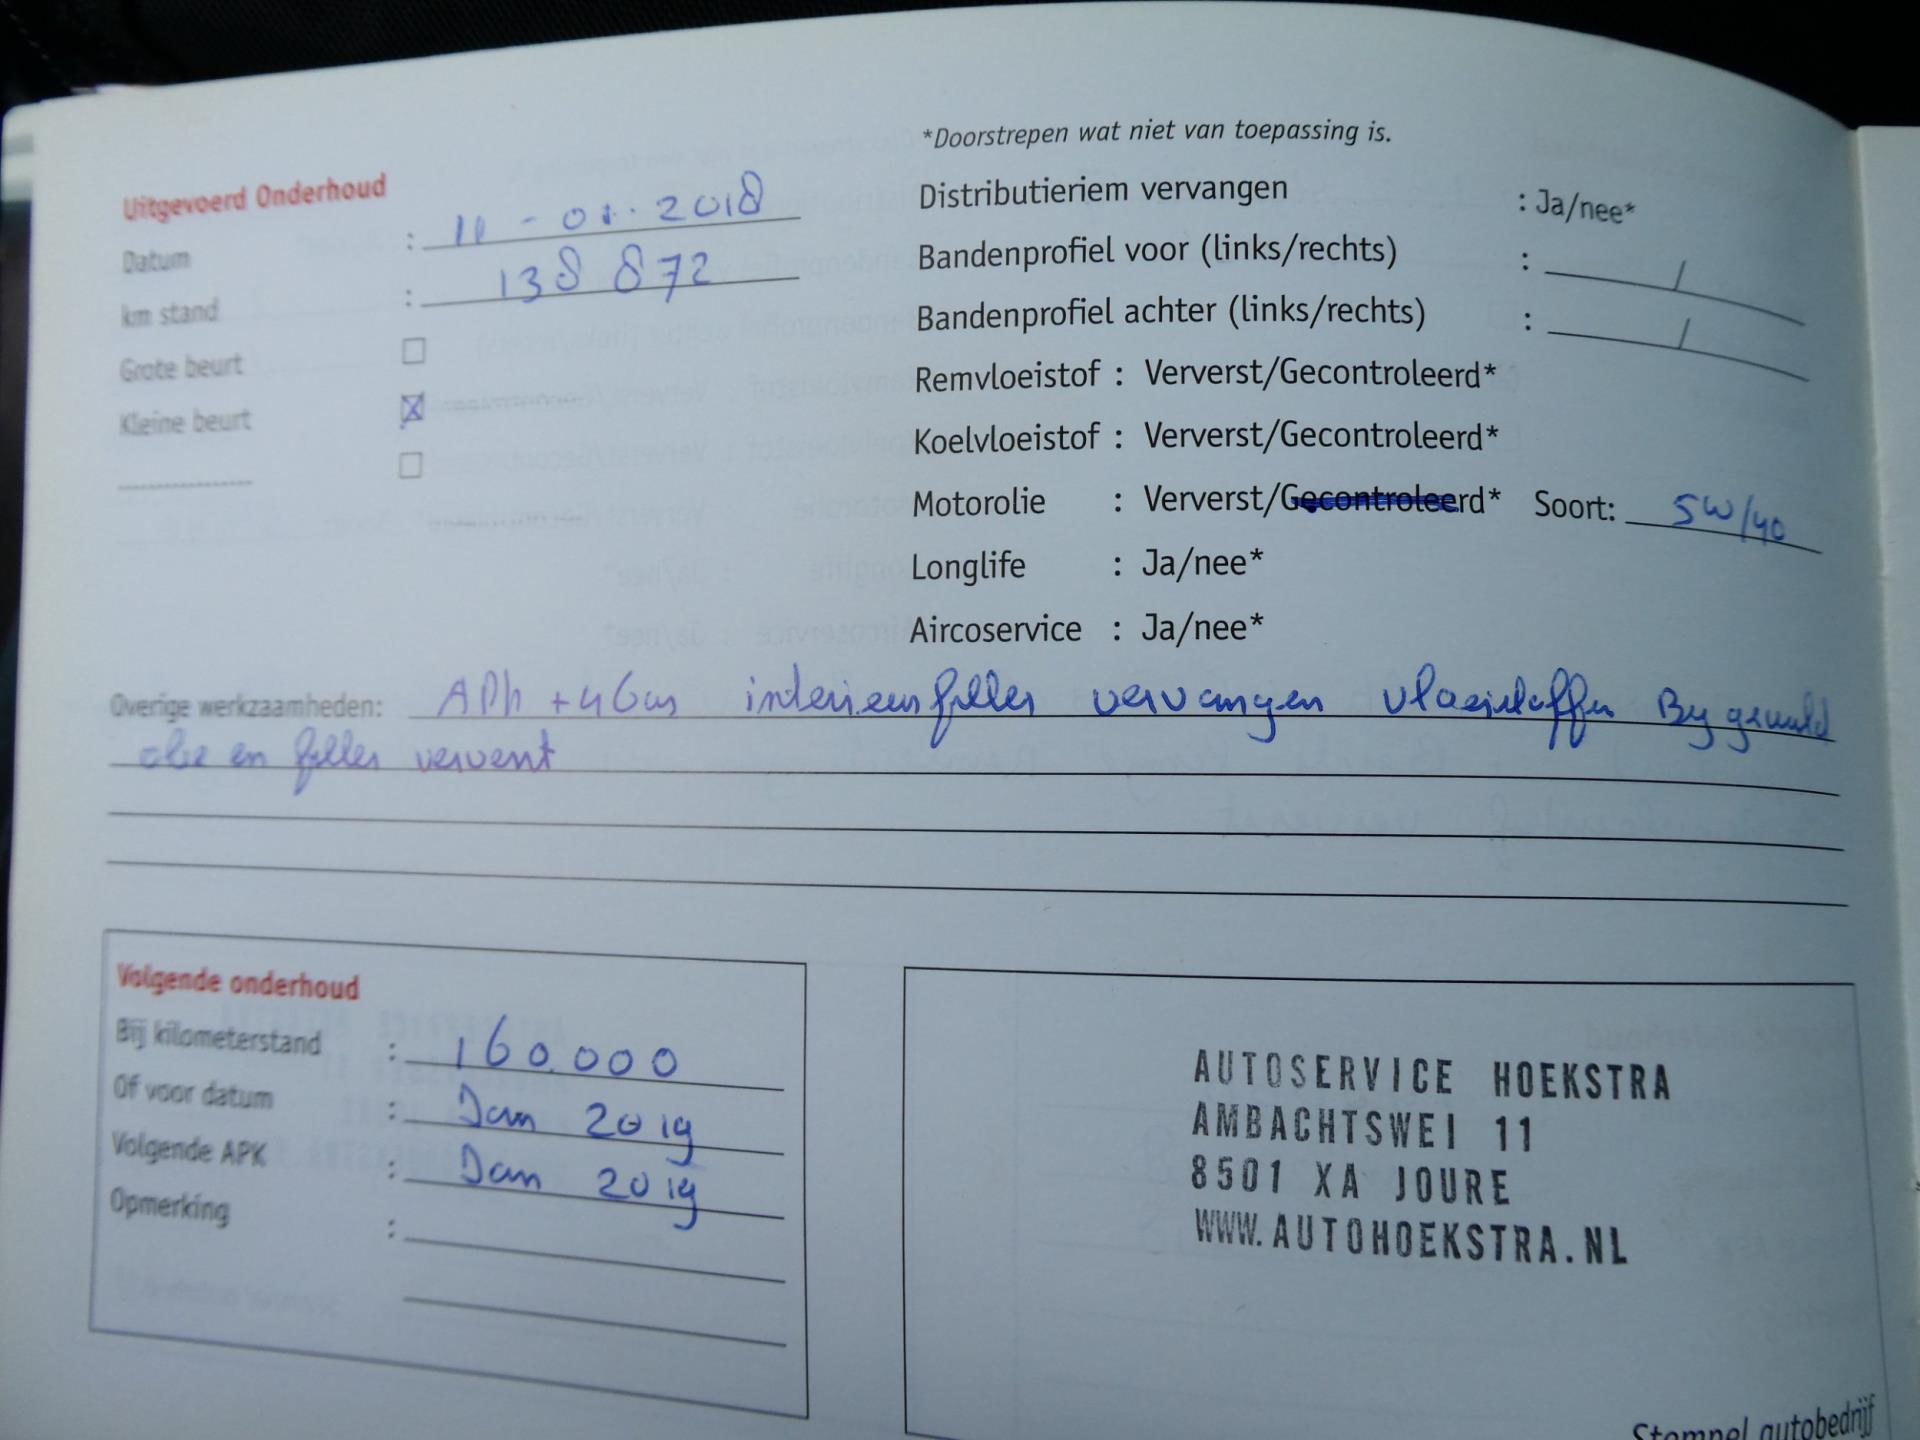 *Doorstrepen wat niet van toepassing is.
Uitgevoerd Onderhoud
Datum : 11-01-2018
km stand : 138 872
Grote beurt
Kleine beurt
Distributieriem vervangen : Ja/nee*
Bandenprofiel voor (links/rechts) : /
Bandenprofiel achter (links/rechts) : /
Remvloeistof : Ververst/Gecontroleerd*
Koelvloeistof : Ververst/Gecontroleerd*
Motorolie : Ververst/Gecontroleerd* Soort: 5W/40
Longlife : Ja/nee*
Aircoservice : Ja/nee*
Overige werkzaamheden: vervangen vloeistoffen
en ververst
Volgende onderhoud
Bij kilometerstand : 160.000
Of voor datum : Jan 2019
Volgende APK : Jan 2019
Opmerking :
AUTOSERVICE HOEKSTRA
AMBACHTSWEI 11
8501 XA JOURE
WWW.AUTOHOEKSTRA.NL
Stempel autobedrijf